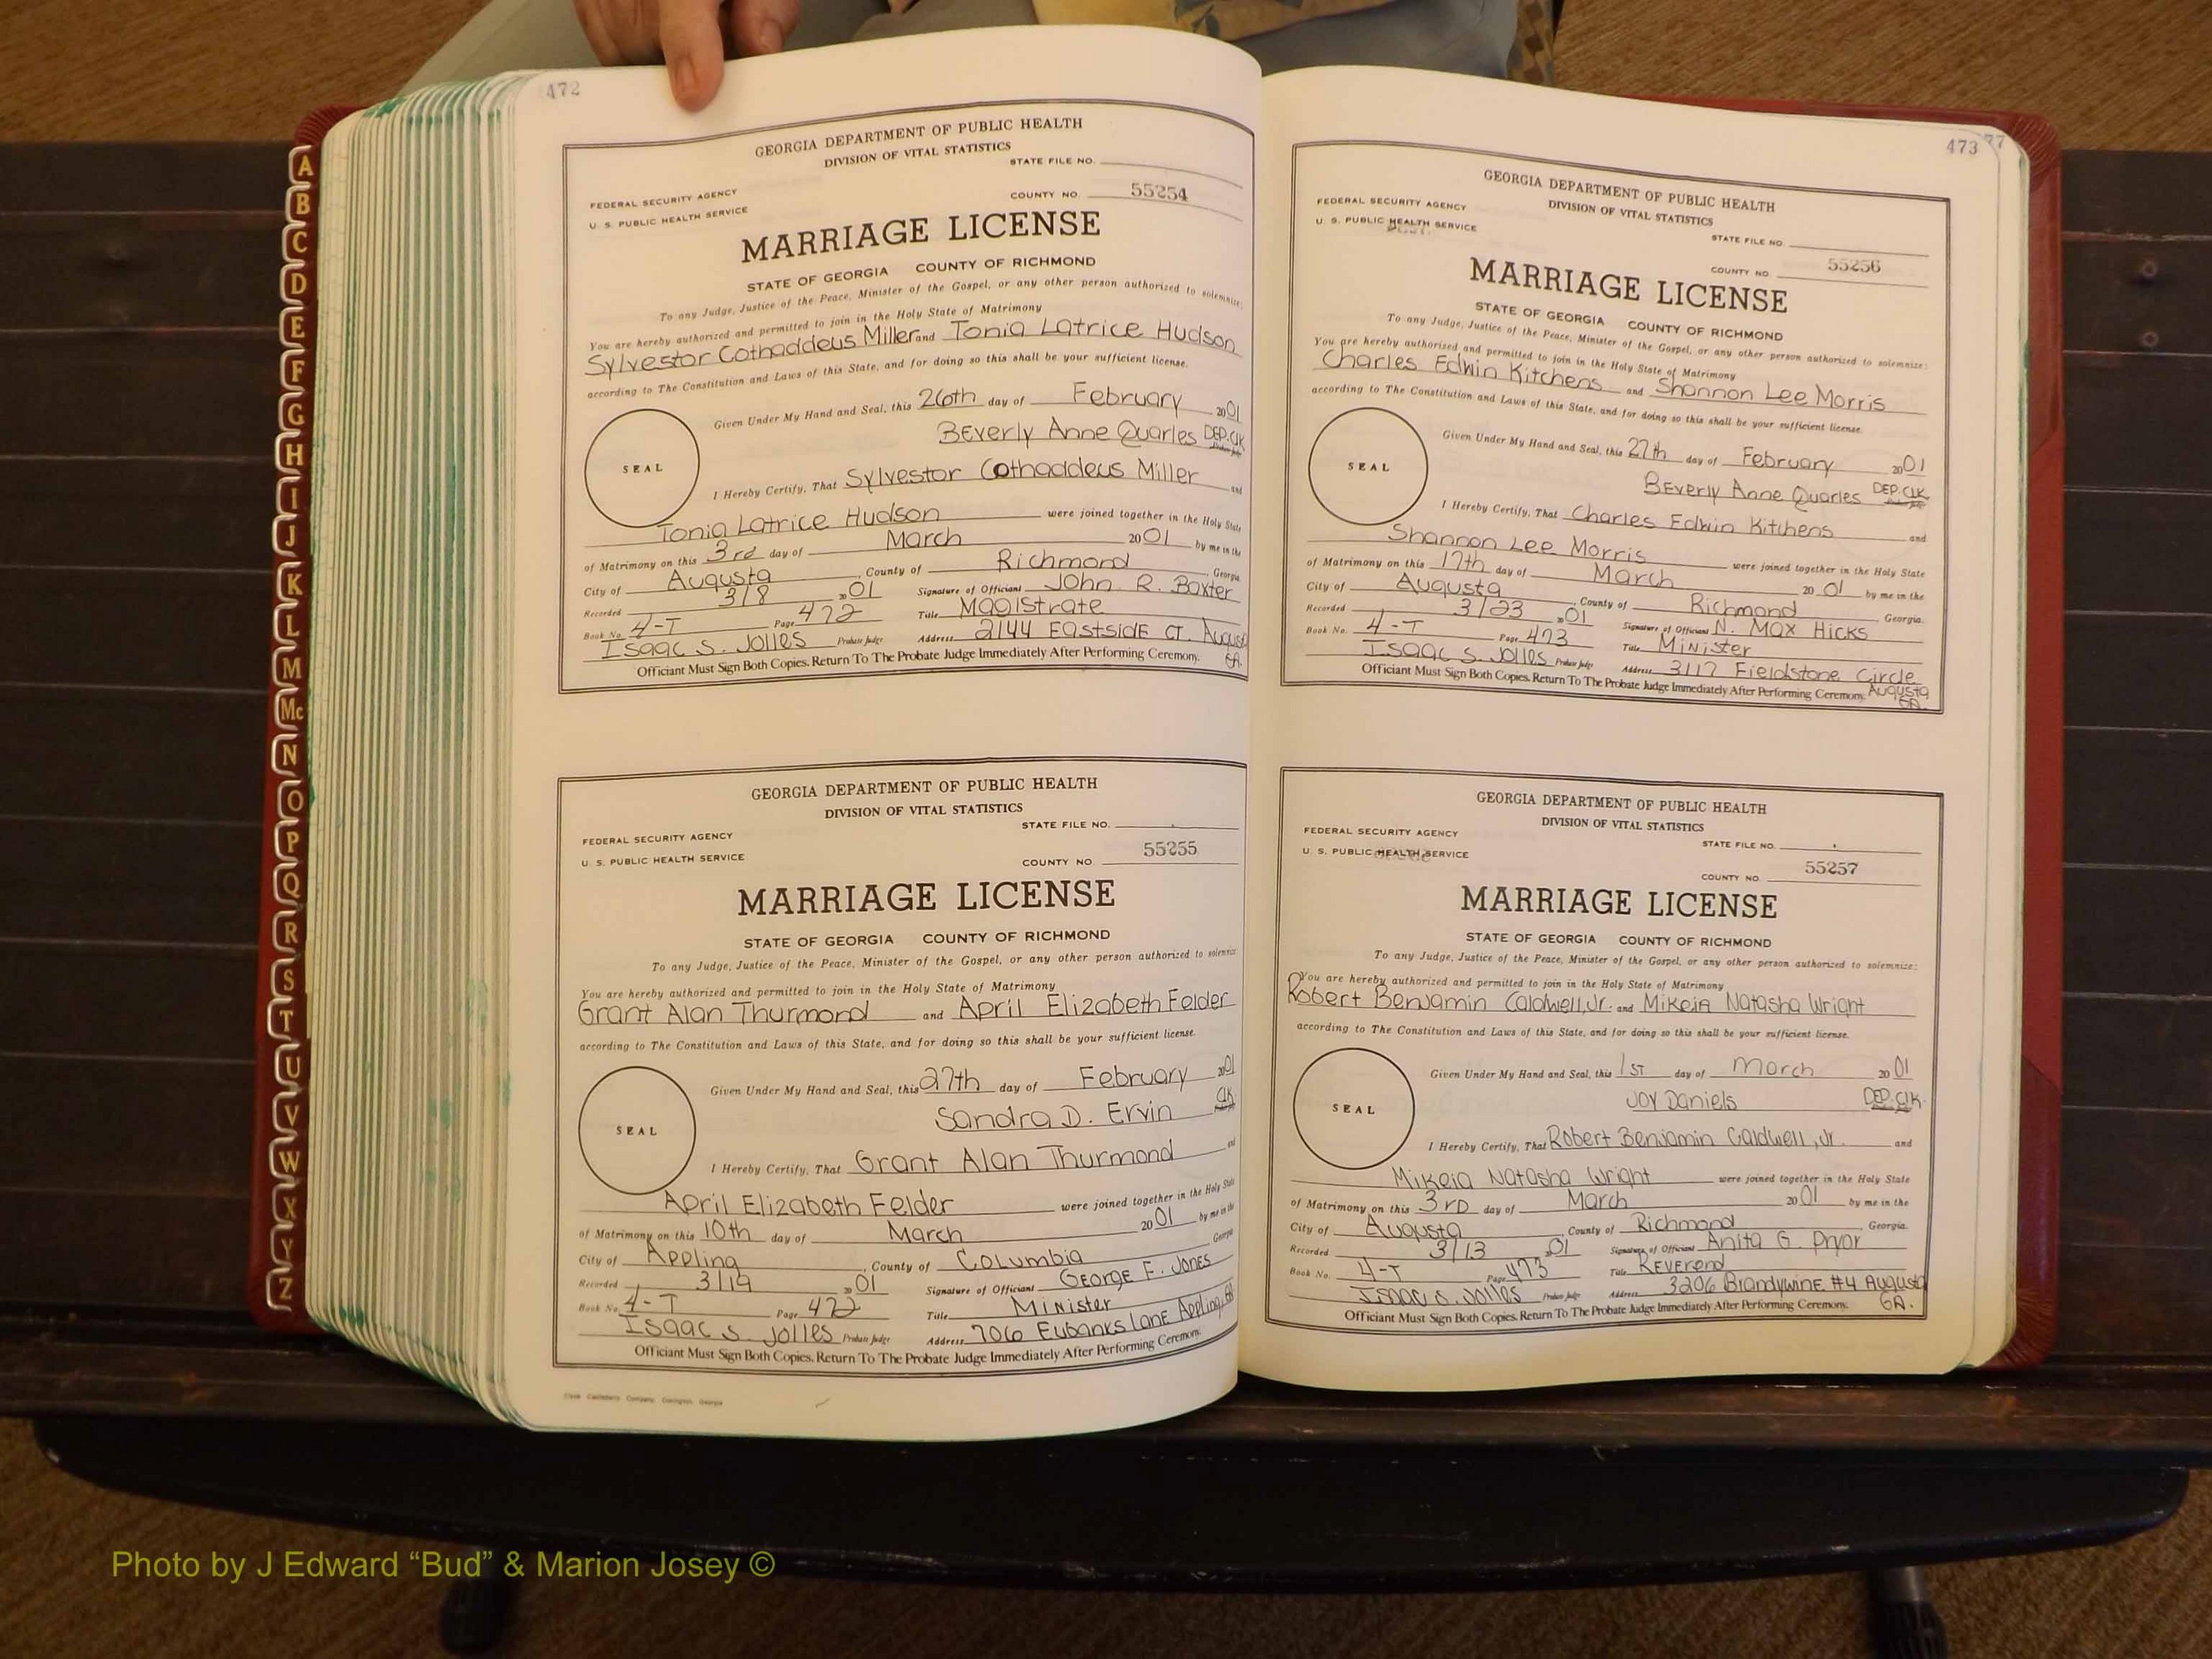 472
GEORGIA DEPARTMENT OF PUBLIC HEALTH
DIVISION OF VITAL STATISTICS
STATE FILE NO.
FEDERAL SECURITY AGENCY
U. S. PUBLIC HEALTH SERVICE
COUNTY NO. 55254
MARRIAGE LICENSE
STATE OF GEORGIA COUNTY OF RICHMOND
To any Judge, Justice of the Peace, Minister of the Gospel, or any other person authorized to solemnize:
You are hereby authorized and permitted to join in the Holy State of Matrimony
Sylvestor Cothaddeus Miller and Tonia Latrice Hudson
according to The Constitution and Laws of this State, and for doing so this shall be your sufficient license.
Given Under My Hand and Seal, this 26th day of February 2001
Beverly Anne Quarles DEP. Clk
SEAL
I Hereby Certify, That Sylvestor Cothaddeus Miller and
Tonia Latrice Hudson were joined together in the Holy State
of Matrimony on this 3rd day of March 2001 by me in the
City of Augusta, County of Richmond, Georgia.
Recorded 3/8 2001 Signature of Officiant John R. Baxter
Book No. 4-T Page 472 Title Magistrate
Isaac S. Jolles Probate Judge Address 2144 Eastside CT. Augusta
GA.
Officiant Must Sign Both Copies. Return To The Probate Judge Immediately After Performing Ceremony.
GEORGIA DEPARTMENT OF PUBLIC HEALTH
DIVISION OF VITAL STATISTICS
STATE FILE NO.
FEDERAL SECURITY AGENCY
U. S. PUBLIC HEALTH SERVICE
COUNTY NO 55255
MARRIAGE LICENSE
STATE OF GEORGIA COUNTY OF RICHMOND
To any Judge, Justice of the Peace, Minister of the Gospel, or any other person authorized to solemnize:
You are hereby authorized and permitted to join in the Holy State of Matrimony
Grant Alan Thurmond and April Elizabeth Felder
according to The Constitution and Laws of this State, and for doing so this shall be your sufficient license.
Given Under My Hand and Seal, this 27th day of February 2001
Sandra D. Ervin Clk.
SEAL
I Hereby Certify, That Grant Alan Thurmond and
April Elizabeth Felder were joined together in the Holy State
of Matrimony on this 10th day of March 2001 by me in the
City of Appling, County of Columbia Georgia
Recorded 3/19 2001 Signature of Officiant George F. Jones
Book No. 4-T Page 472 Title Minister
Isaac S. Jolles Probate Judge Address 706 Eubanks Lane Appling, GA
Officiant Must Sign Both Copies. Return To The Probate Judge Immediately After Performing Ceremony.
473 77
GEORGIA DEPARTMENT OF PUBLIC HEALTH
DIVISION OF VITAL STATISTICS
FEDERAL SECURITY AGENCY
U. S. PUBLIC HEALTH SERVICE
STATE FILE NO.
COUNTY NO 55256
MARRIAGE LICENSE
STATE OF GEORGIA COUNTY OF RICHMOND
To any Judge, Justice of the Peace, Minister of the Gospel, or any other person authorized to solemnize:
You are hereby authorized and permitted to join in the Holy State of Matrimony
Charles Edwin Kitchens and Shannon Lee Morris
according to The Constitution and Laws of this State, and for doing so this shall be your sufficient license.
Given Under My Hand and Seal, this 27th day of February 2001
Beverly Anne Quarles DEP. Clk.
SEAL
I Hereby Certify, That Charles Edwin Kitchens and
Shannon Lee Morris were joined together in the Holy State
of Matrimony on this 17th day of March 2001 by me in the
City of Augusta, County of Richmond Georgia.
Recorded 3/23 2001 Signature of Officiant N. Max Hicks
Book No. 4-T Page 473 Title Minister
Isaac S. Jolles Probate Judge Address 3117 Fieldstone Circle
Augusta GA.
Officiant Must Sign Both Copies. Return To The Probate Judge Immediately After Performing Ceremony.
GEORGIA DEPARTMENT OF PUBLIC HEALTH
DIVISION OF VITAL STATISTICS
FEDERAL SECURITY AGENCY
U. S. PUBLIC HEALTH SERVICE
STATE FILE NO.
COUNTY NO. 55257
MARRIAGE LICENSE
STATE OF GEORGIA COUNTY OF RICHMOND
To any Judge, Justice of the Peace, Minister of the Gospel, or any other person authorized to solemnize:
You are hereby authorized and permitted to join in the Holy State of Matrimony
Robert Benjamin Caldwell, Jr. and Mikeia Natasha Wright
according to The Constitution and Laws of this State, and for doing so this shall be your sufficient license.
Given Under My Hand and Seal, this 1st day of March 2001
Joy Daniels DEP. Clk.
SEAL
I Hereby Certify, That Robert Benjamin Caldwell, Jr. and
Mikeia Natasha Wright were joined together in the Holy State
of Matrimony on this 3rd day of March 2001 by me in the
City of Augusta, County of Richmond, Georgia.
Recorded 3/13 2001 Signature of Officiant Anita G. Pryor
Book No. 4-T Page 473 Title Reverend
Isaac S. Jolles Probate Judge Address 3206 Brandywine #4 Augusta
GA.
Officiant Must Sign Both Copies. Return To The Probate Judge Immediately After Performing Ceremony.
A
B
C
D
E
F
G
H
I
J
K
L
M
Mc
N
O
P
Q
R
S
T
U
V
W
X
Y
Z
Photo by J Edward “Bud” & Marion Josey ©